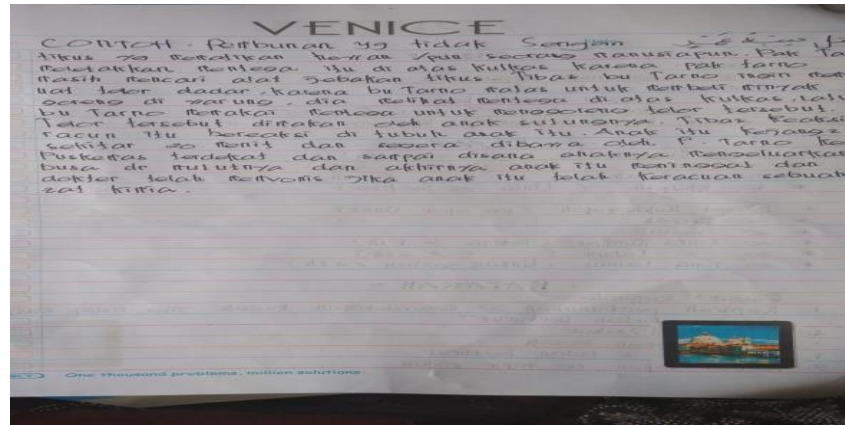 VENICE
CONTOH. Pembunan yg tidak Sengaja
tikus yg mematikan hewan /pun seorang manusiapun. Pak Ta
meletakkan mentega itu di atas kulkas karena pak tarno
masih mencari alat jebakan tikus. Tiba2 bu Tarno ingin mem
uat telor dadar. karena bu Tarno malas untuk membeli minyak
goreng di warung, dia melihat mentega di atas kulkas. Lalu
bu Tarno memakai mentega untuk menggoreng telor tersebut.
Telor tersebut dimakan oleh anak sulungnya. Tiba2 Reaksi
racun itu bereaksi di tubuh anak itu. Anak itu kejang2
sekitar 20 menit dan segera dibawa oleh P. Tarno ke
Puskesmas terdekat dan sampai disana anaknya mengeluarkan
busa dr mulutnya dan akhirnya anak itu meninggal dan
dokter telah memvonis jika anak itu telah keracunan sebuah
zat kimia.
One thousand problems, million solutions